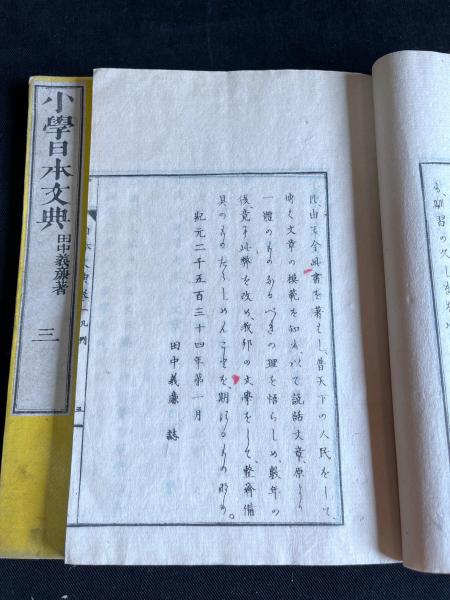 小學日本文典
田中義廉著
三
此由ヲ全此書を著もし、普天下の人民をして、
文章の模範を知ら、以て説話文章原より
一體のものなるべきの理を悟らしめ、數年の
後、竟に此弊を改め、我邦の文學をして、整齊備
具のものたらしめんことを、期するもの耶。
紀元二千五百三十四年第一月
田中義廉 誌
凡例
五
習の久し